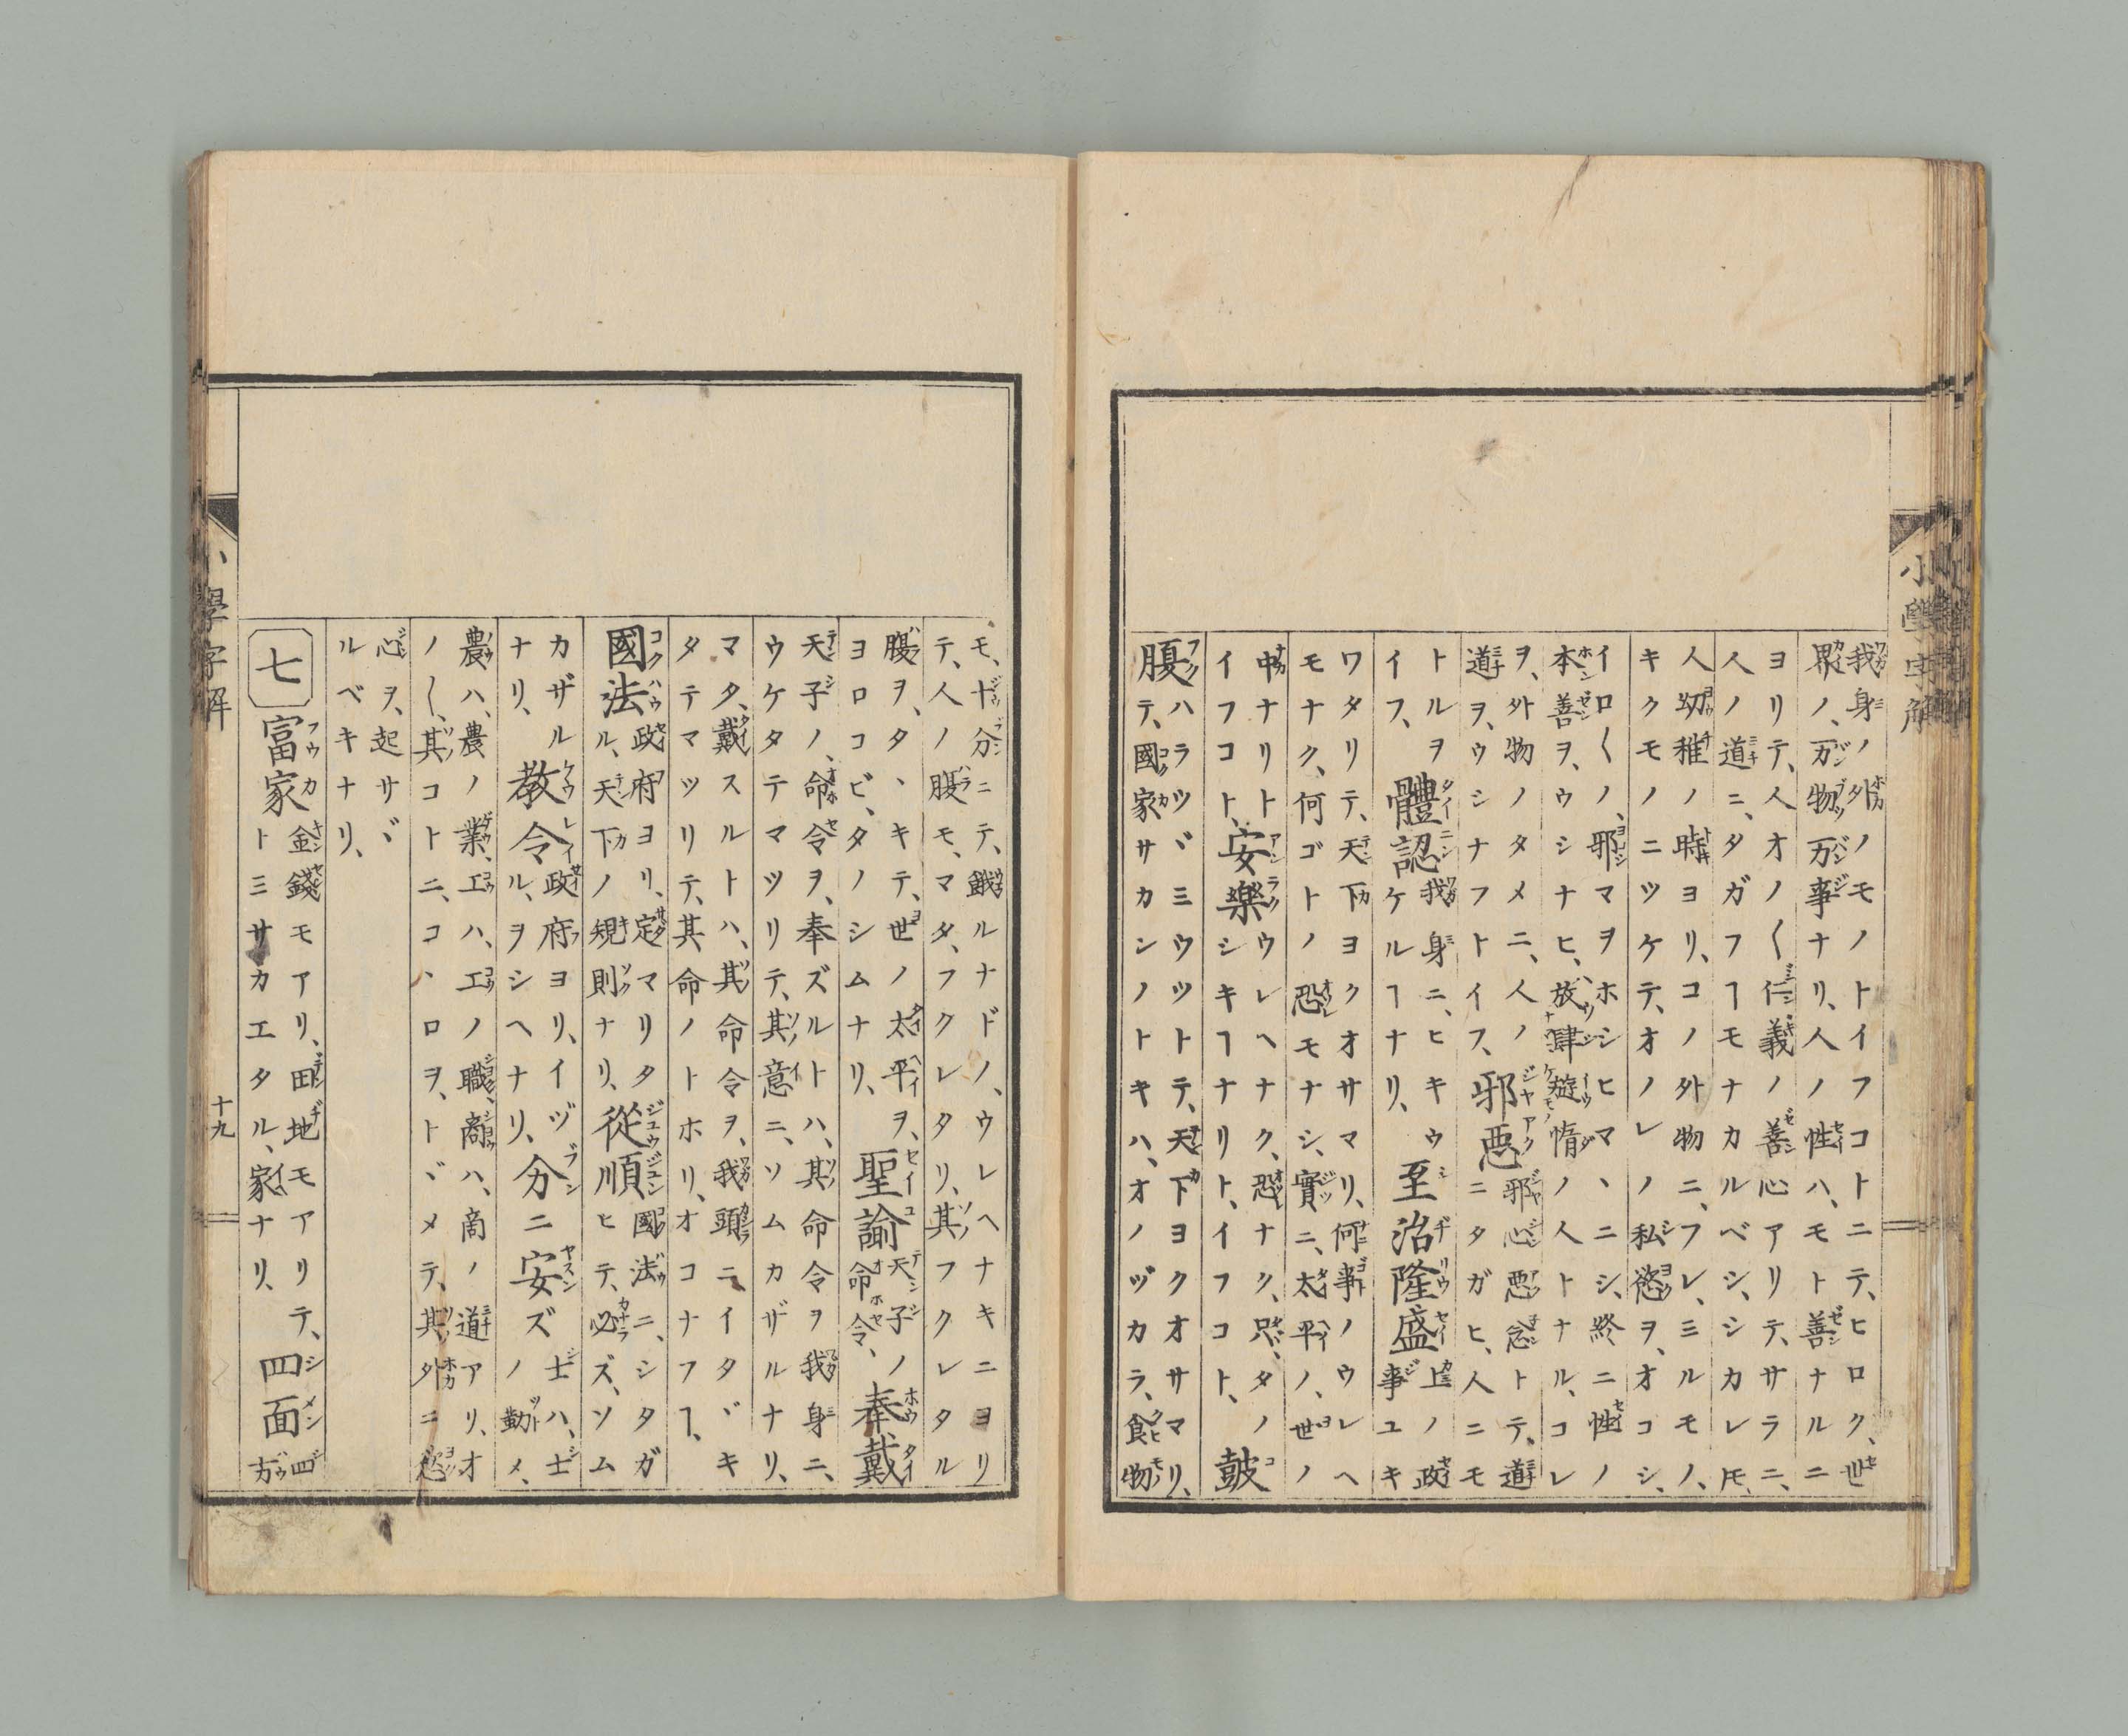 我身ノ外ノモノトイフコトニテ、ヒロク、世
界ノ、万物万事ナリ、人ノ性ハ、モト善ナルニ
ヨリテ、人オノ〱仁義ノ善心アリテ、サラニ、
人ノ道ニ、タガフヿモナカルベシ、シカレ𪜈、
人幼稚ノ時ヨリ、コノ外物ニ、フレ、ミルモノ、
キクモノニツケテ、オノレノ私慾ヲ、オコシ、
イロ〱ノ、邪マヲホシヒマヽニシ、終ニ性ノ
本善ヲ、ウシナヒ、放肆遊惰ノ人トナル、コレ
ヲ、外物ノタメニ、人ノ
道ヲ、ウシナフトイフ、
邪惡
邪心惡念トテ、道
ニタガヒ、人ニモ
トルヲ
イフ、
體認
我身ニ、ヒキウ
ケルヿナリ、
至治隆盛
上ノ政
事ユキ
ワタリテ、天下ヨクオサマリ、何事ノウレヘ
モナク、何ゴトノ恐モナシ、實ニ、太平ノ、世ノ
中ナリト
イフコト、
安樂
ウレヘナク、恐ナク、只、タノ
シキヿナリト、イフコト、
鼓
腹
ハラツヾミウツトテ、天下ヨクオサマリ、
テ、國家サカンノトキハ、オノヅカラ、食物
モ、十分ニテ、餓ルナドノ、ウレヘナキニヨリ
テ、人ノ腹モ、マタ、フクレタリ、其フクレタル
腹ヲ、タヽキテ、世ノ太平ヲ、
ヨロコビ、タノシムナリ、
聖諭
天子ノ
命令、
奉戴
天子ノ、命令ヲ、奉ズルトハ、其命令ヲ我身ニ、
ウケタテマツリテ、其意ニ、ソムカザルナリ、
マタ、戴スルトハ、其命令ヲ、我頭ニイタヾキ
タテマツリテ、其命ノトホリ、オコナフヿ、
國法
政府ヨリ、定マリタ
ル、天下ノ規則ナリ、
從順
國法ニ、シタガ
ヒテ、必ズ、ソム
カザル
ナリ、
敎令
政府ヨリ、イヅ
ル、ヲシヘナリ、
分ニ安ズ
士ハ、士
ノ勤メ、
農ハ、農ノ業、工ハ、工ノ職、商ハ、商ノ道アリ、オ
ノ〱、其コトニ、コヽロヲ、トヾメテ、其外ニ慾
心ヲ、起サヾ
ルベキナリ、
七
富家
金錢モアリ、田地モアリテ、
トミサカエタル、家ナリ、
四面
四
方
小學字解
十九